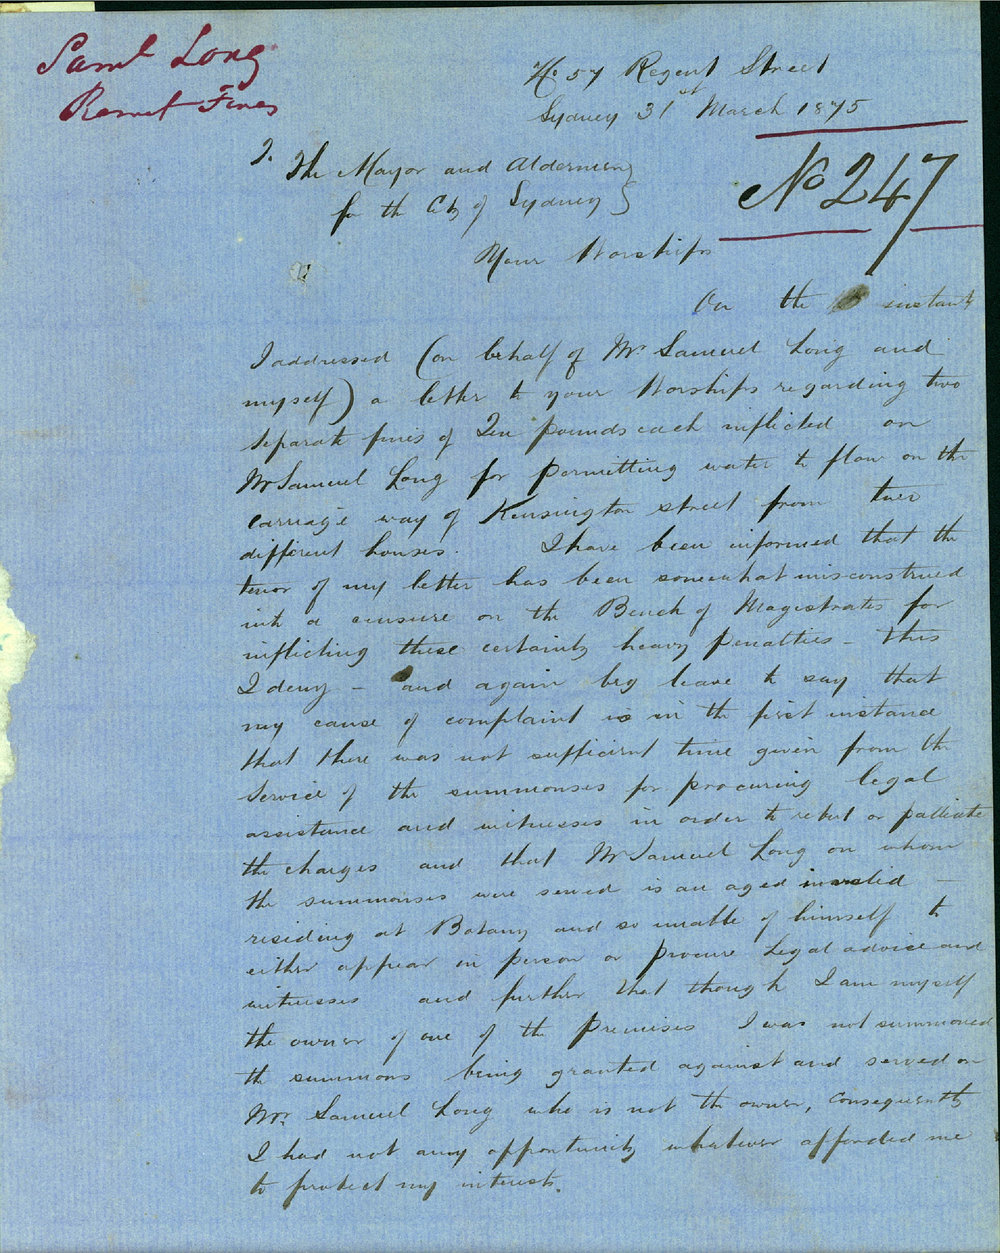 Saml Long
Remit Fines
No 57 Regent Street
Sydney 31st March 1875
No 247
To The Mayor and Aldermen
for the City of Sydney
Your Worships
On the instant
I addressed (on behalf of Mr Samuel Long and
myself) a letter to your Worships regarding two
separate fines of Ten pounds each inflicted on
Mr Samuel Long for permitting water to flow on the
carriage way of Kensington street from two
different houses. I have been informed that the
tenor of my letter has been somewhat misconstrued
into a censure on the Bench of Magistrates for
inflicting these certainly heavy penalties - this
I deny - and again beg leave to say that
my cause of complaint is in the first instance
that there was not sufficient time given from the
service of the summonses for procuring legal
assistance and witnesses in order to rebut or palliate
the charges and that Mr Samuel Long on whom
the summonses were served is an aged invalid -
residing at Botany and so unable of himself to
either appear in person or procure Legal advice and
witnesses and further that though I am myself
the owner of one of the premises I was not summoned
the summons being granted against and served on
Mr. Samuel Long who is not the owner, consequently
I had not any opportunity whatever afforded me
to protect my interests.